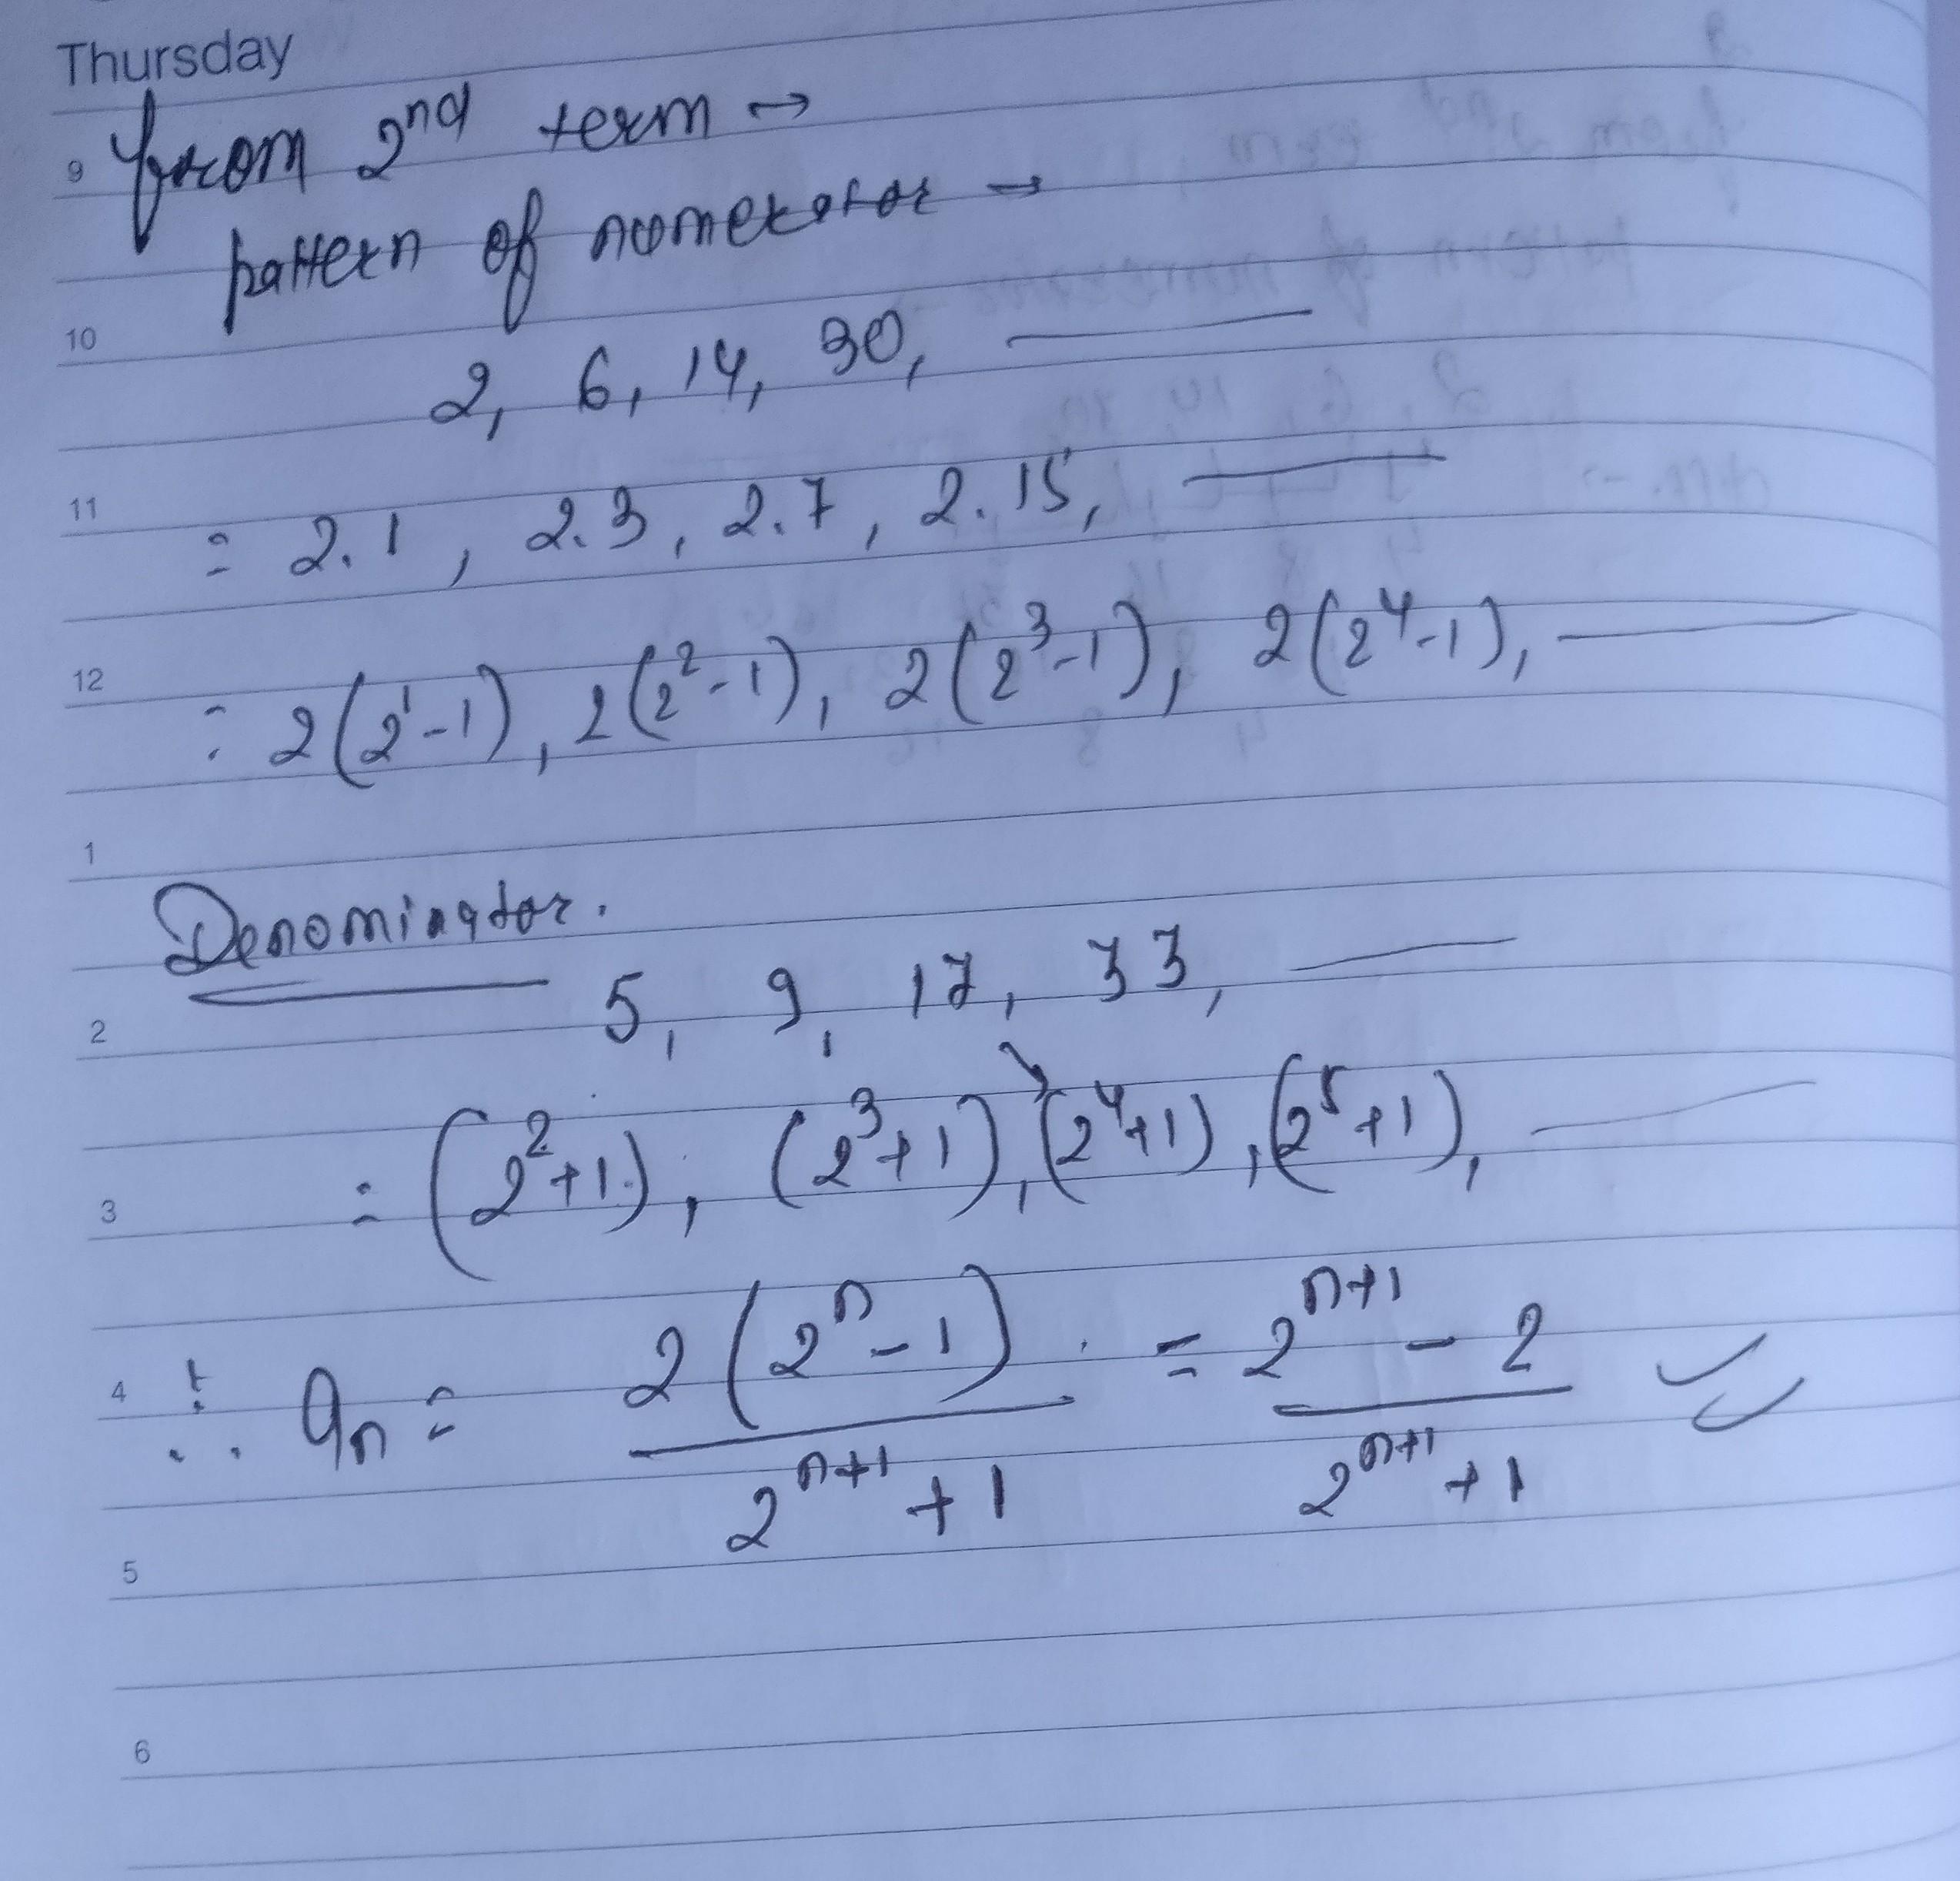 Thursday
9 from 2nd term →
pattern of numerator →
10
2, 6, 14, 30, ———
11
= 2.1, 2.3, 2.7, 2.15, ———
12
= 2(2¹-1), 2(2²-1), 2(2³-1), 2(2⁴-1), ———
1
Denominator.
5, 9, 17, 33, ———
2
= (2²+1), (2³+1), (2⁴+1), (2⁵+1), ———
3
4 ∴ aₙ = 2(2ⁿ-1) / 2ⁿ⁺¹+1 = 2ⁿ⁺¹-2 / 2ⁿ⁺¹+1
5
6